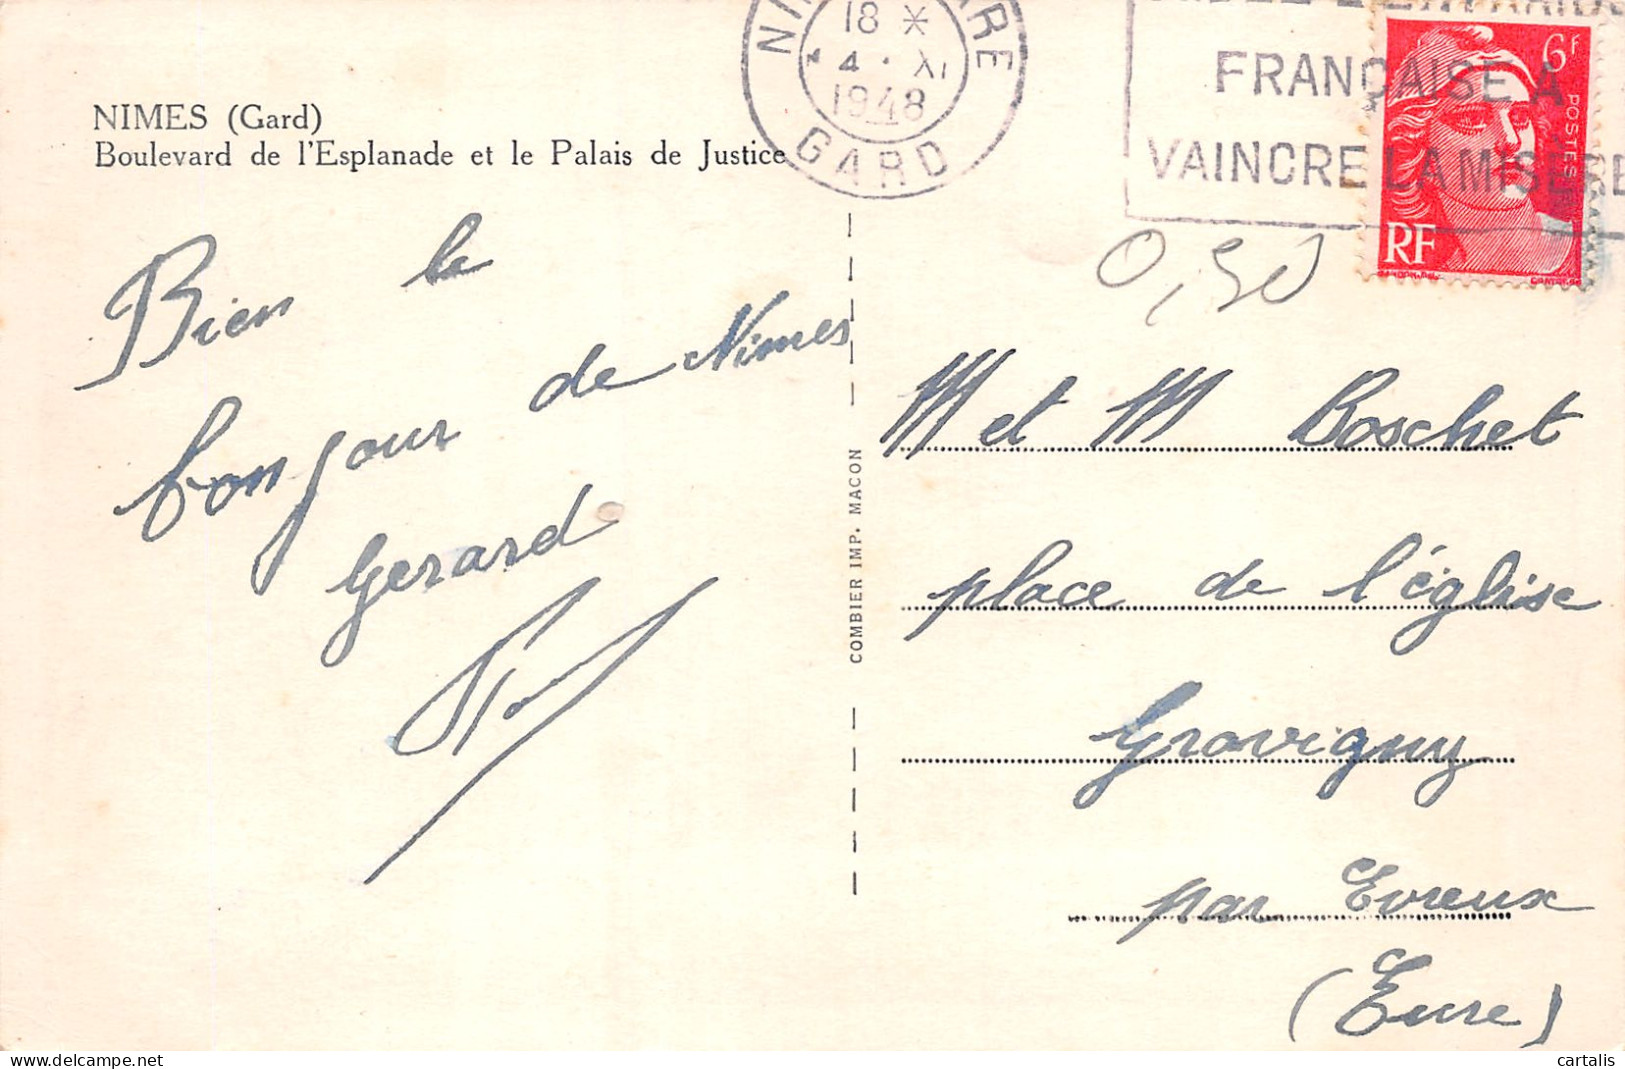 NIMES (Gard)
Boulevard de l'Esplanade et le Palais de Justice
18
4 XI
1948
GARD
FRANÇAISE A
VAINCRE LA MISERE
6F
POSTES
RF
0,50
Bien le
bonjour de Nimes
Gerard
COMBIER IMP. MACON
M et M Boschet
place de l'église
Gravigny
par Evreux
(Eure)
cartalis